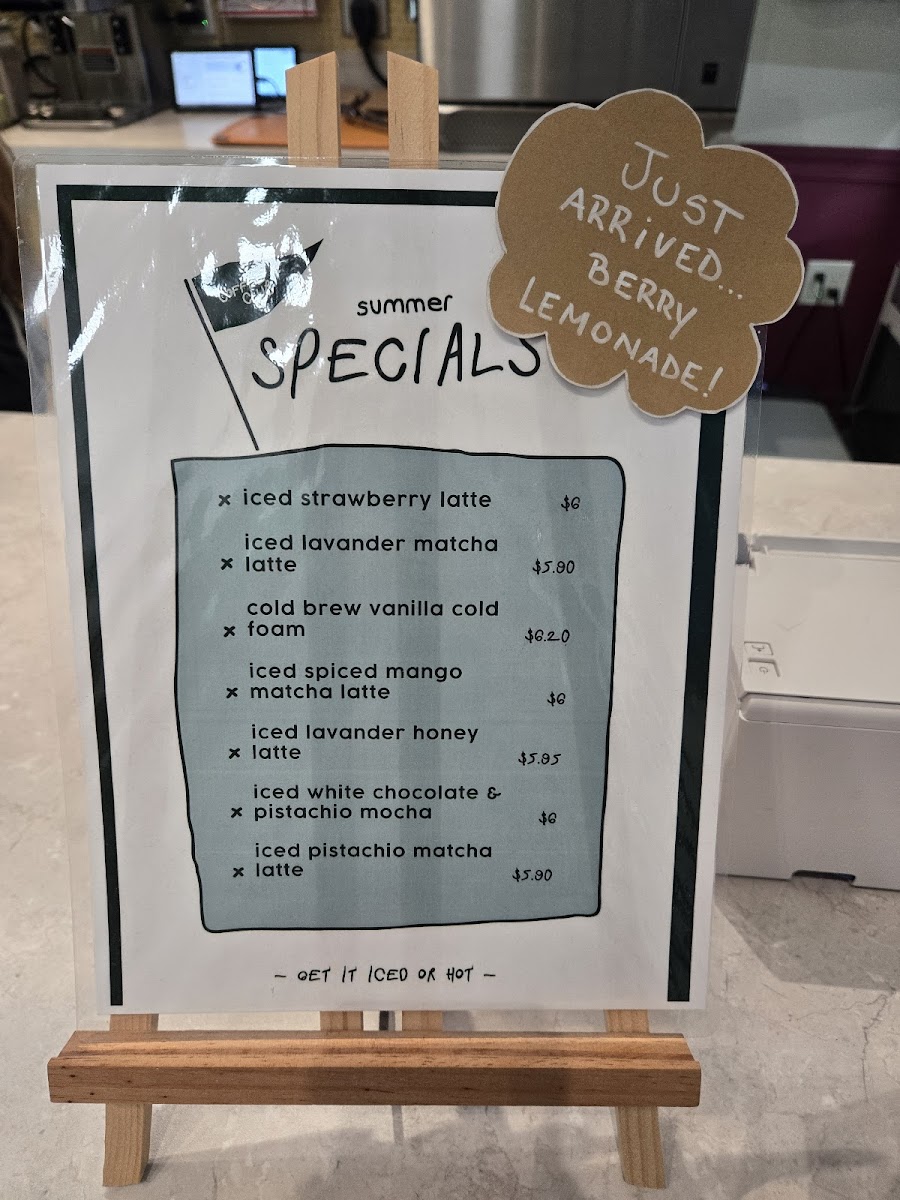 JUST
ARRiVED...
BERRY
LEMONADE!
summer
SPECIALS
× iced strawberry latte $6
iced lavander matcha
× latte $5.90
cold brew vanilla cold
× foam $6.20
iced spiced mango
× matcha latte $6
iced lavander honey
× latte $5.95
iced white chocolate &
× pistachio mocha $6
iced pistachio matcha
× latte $5.90
– GET IT ICED OR HOT –